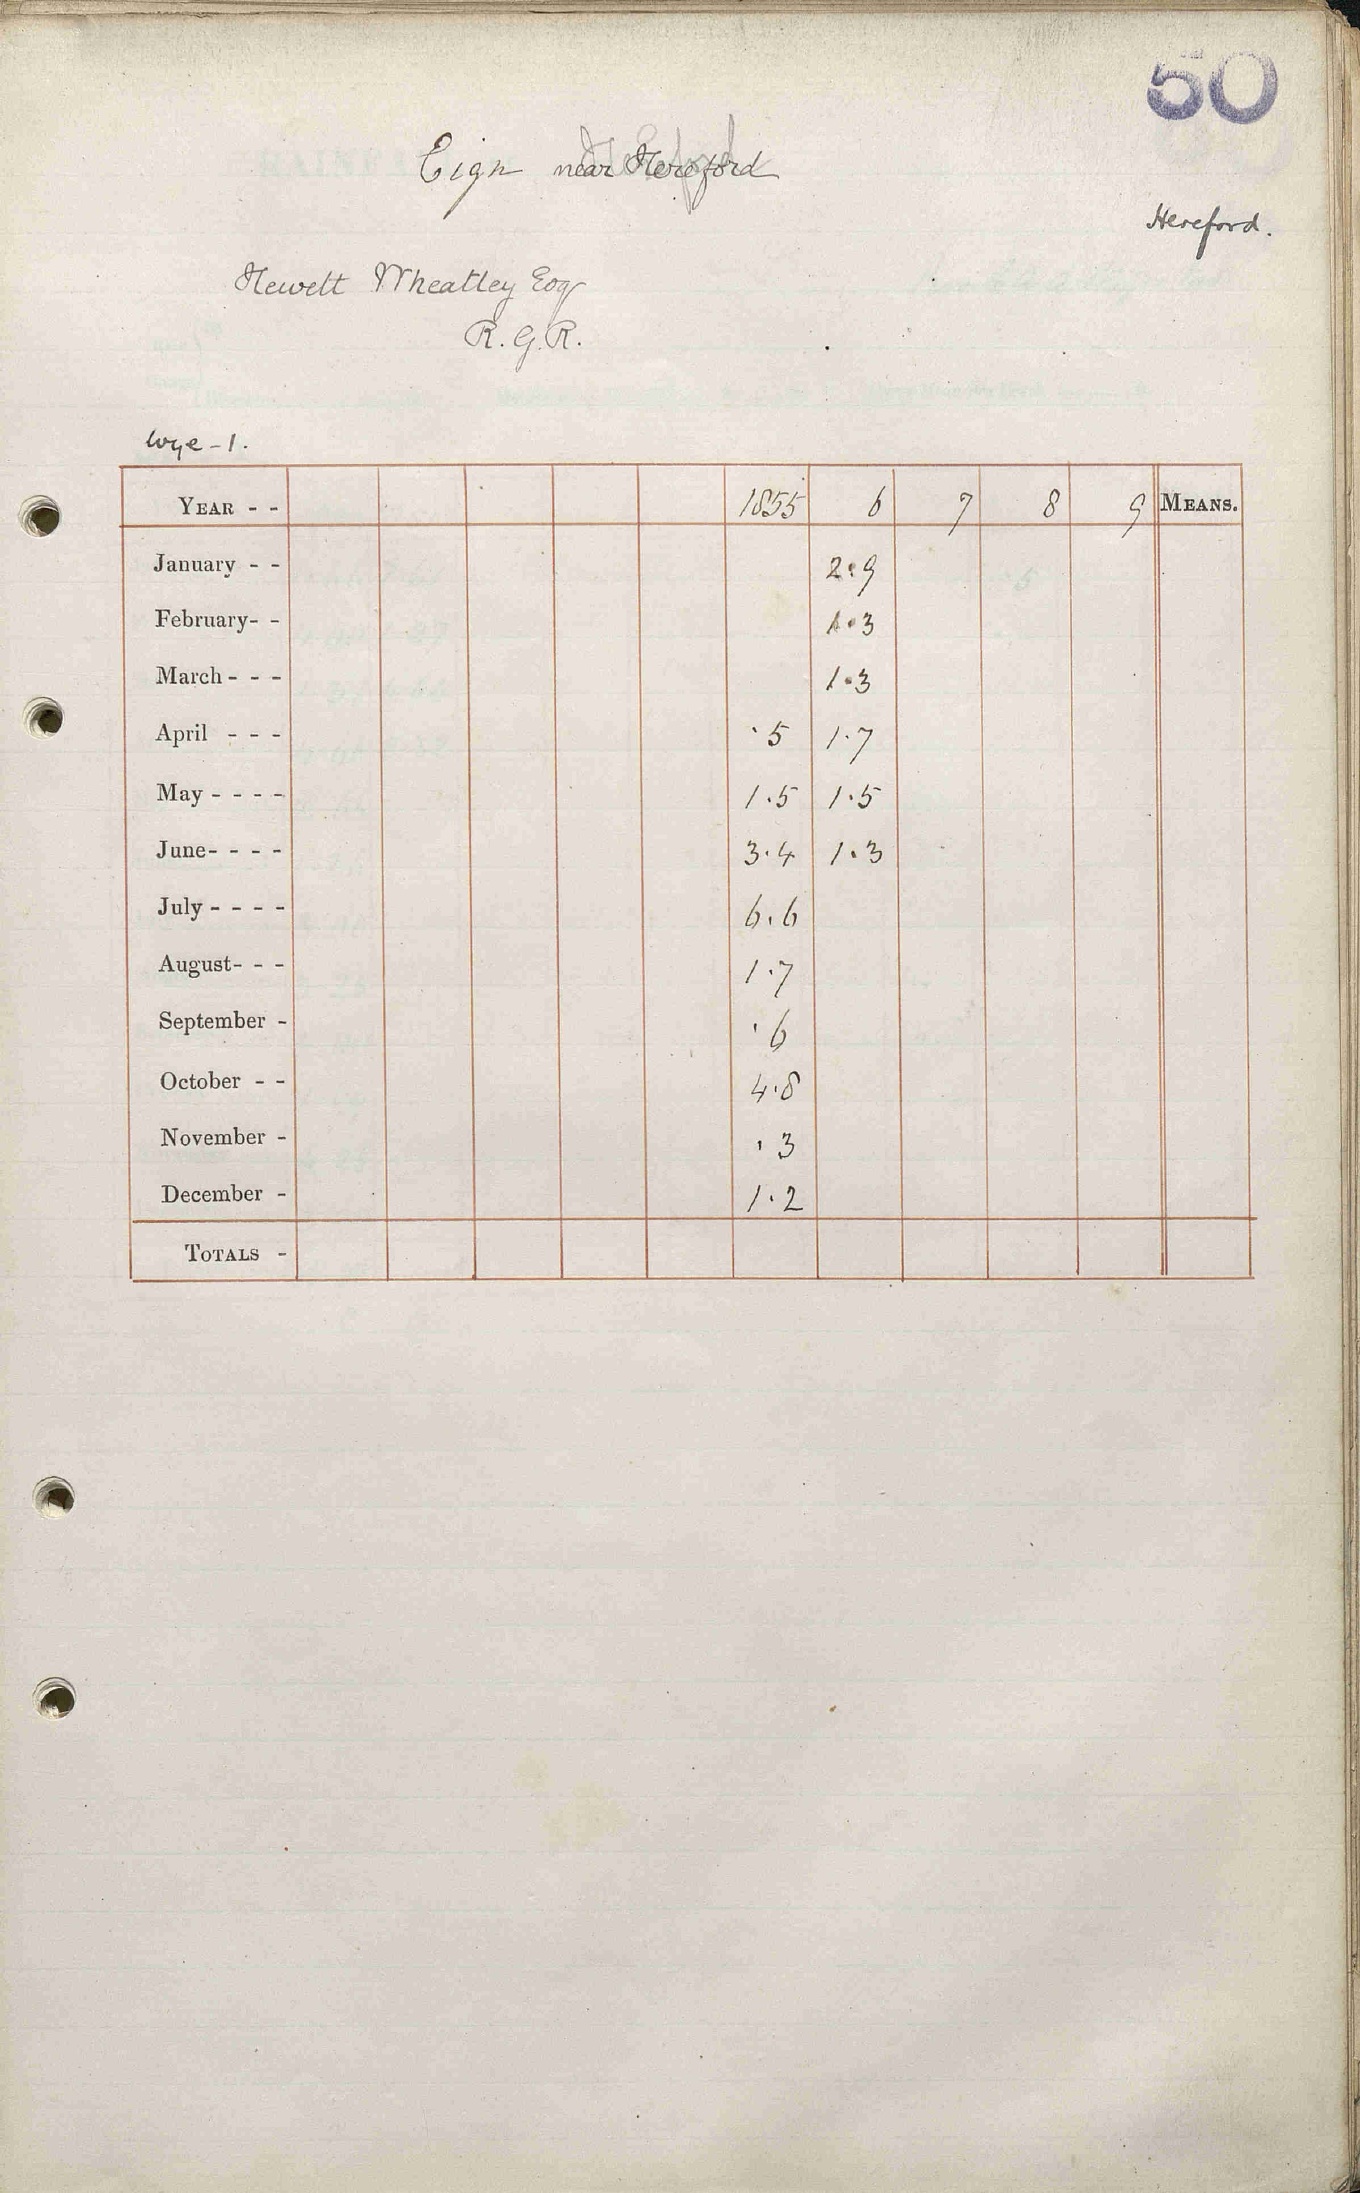 50
Eign near Hereford
Hereford.
Hewett Wheatley Esq
R.G.R.
Wye - 1.
YEAR - - 1855 6 7 8 9 MEANS.
January - - 2.9
February- - 1.3
March - - - 1.3
April - - - .5 1.7
May - - - - 1.5 1.5
June- - - - 3.4 1.3
July - - - - 6.6
August- - - 1.7
September - .6
October - - 4.8
November - .3
December - 1.2
TOTALS -